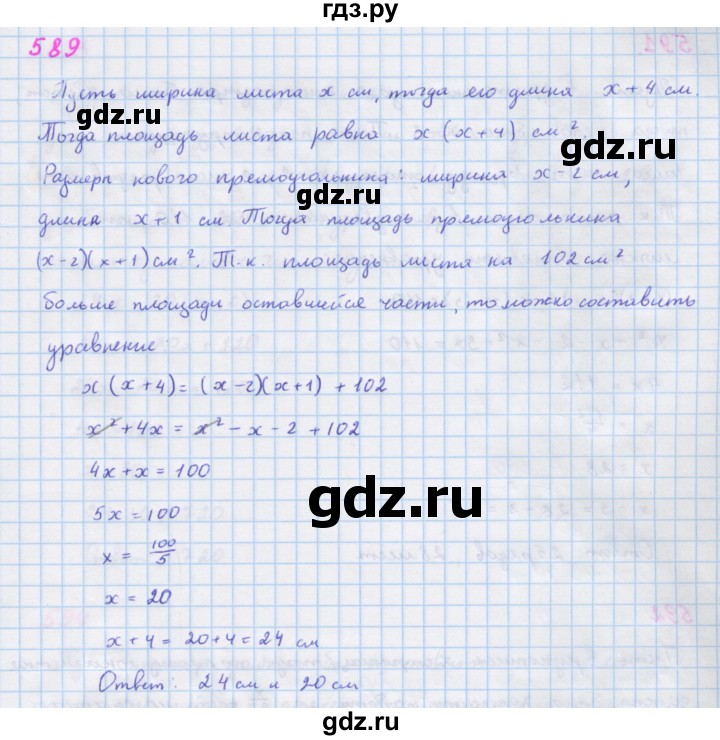 гдз.ру
589
Пусть ширина листа x см, тогда его длина x+4 см.
gdz.ru
Тогда площадь листа равна x(x+4) см².
Размеры нового прямоугольника: ширина x-2 см,
длина x+1 см Тогда площадь прямоугольника
(x-2)(x+1) см². Т.к. площадь листа на 102 см²
gdz.ru
больше площади оставшейся части, то можно составить
уравнение
x(x+4)=(x-2)(x+1)+102
x²+4x=x²-x-2+102
gdz.ru
4x+x=100
gdz.ru
5x=100
x=100/5
x=20
x+4=20+4=24 см
Ответ: 24 см и 20 см
gdz.ru
gdz.ru